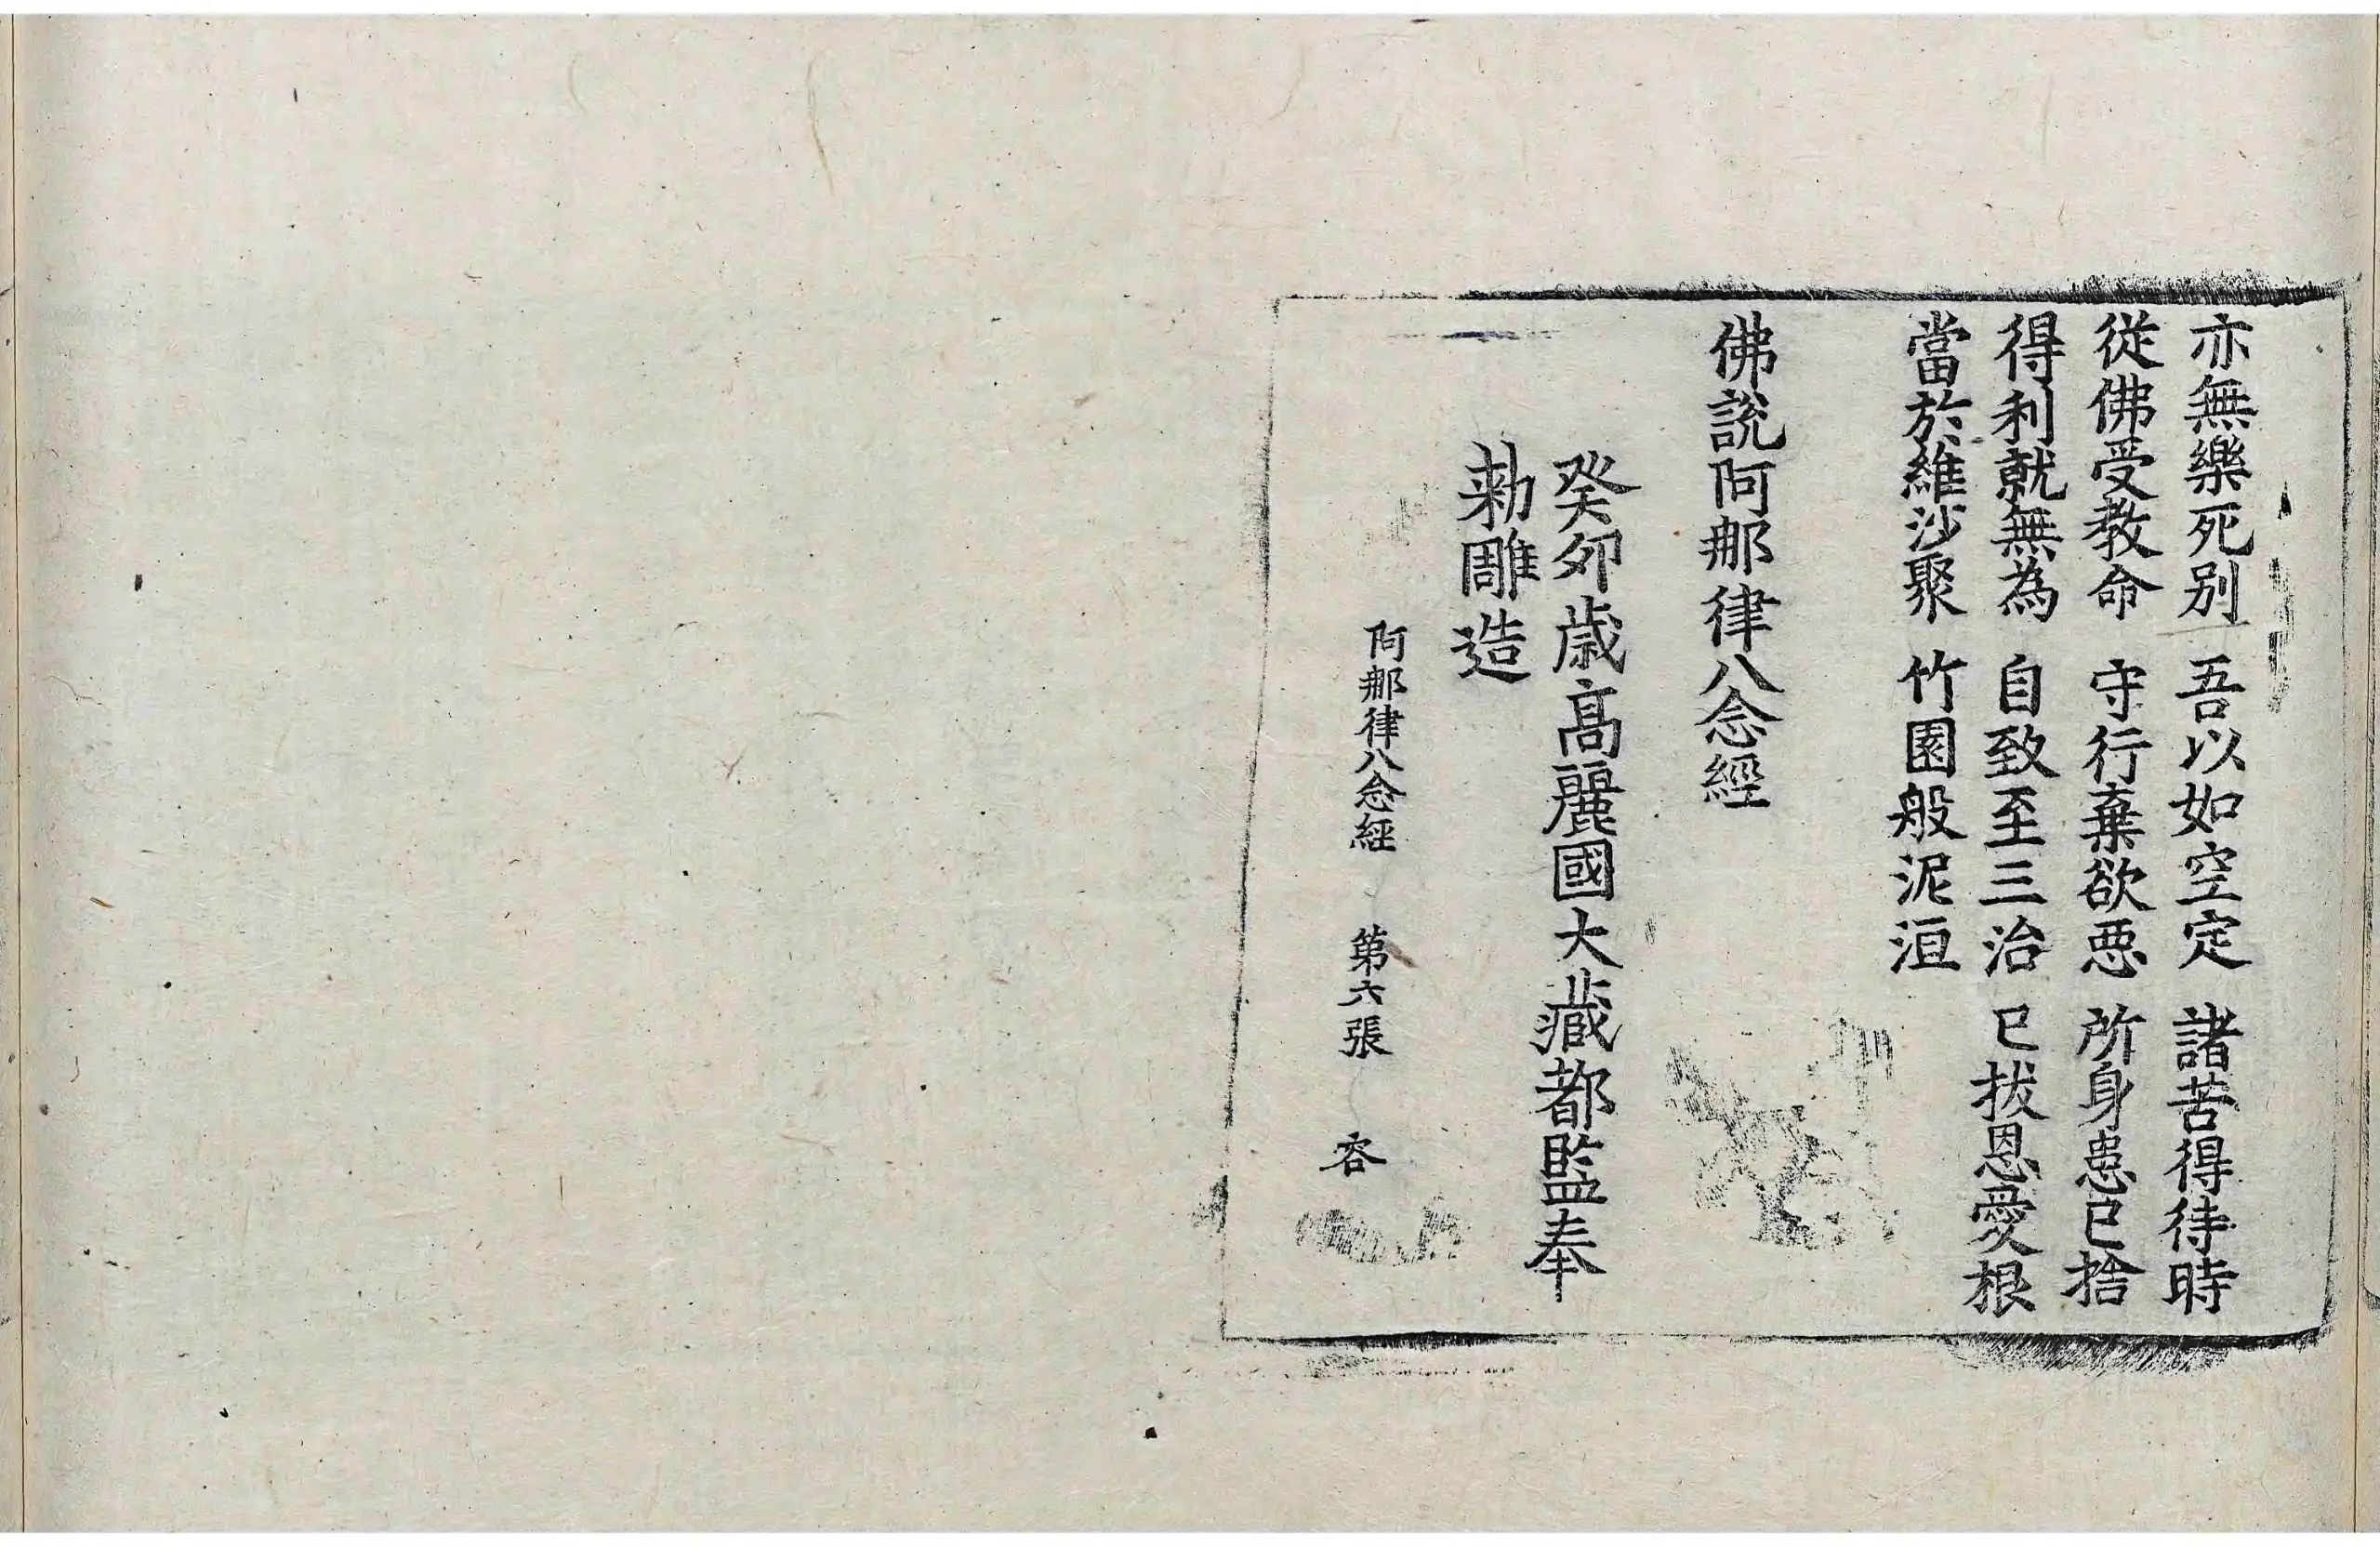 亦無樂死別　吾以如空定　諸苦得待時
從佛受教命　守行棄欲惡　所身患已捨
得利就無為　自致至三治　已拔恩愛根
當於維沙聚　竹園般泥洹
佛說阿那律八念經
癸卯歲高麗國大藏都監奉
勑雕造
阿那律八念經　第六張　容